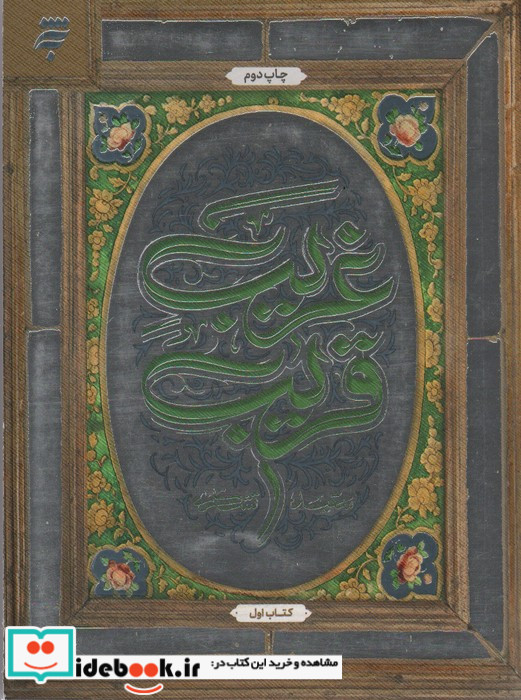 چاپ دوم
غریب
قریب
کتاب اول
idebook.ir
مشاهده و خرید این کتاب در: